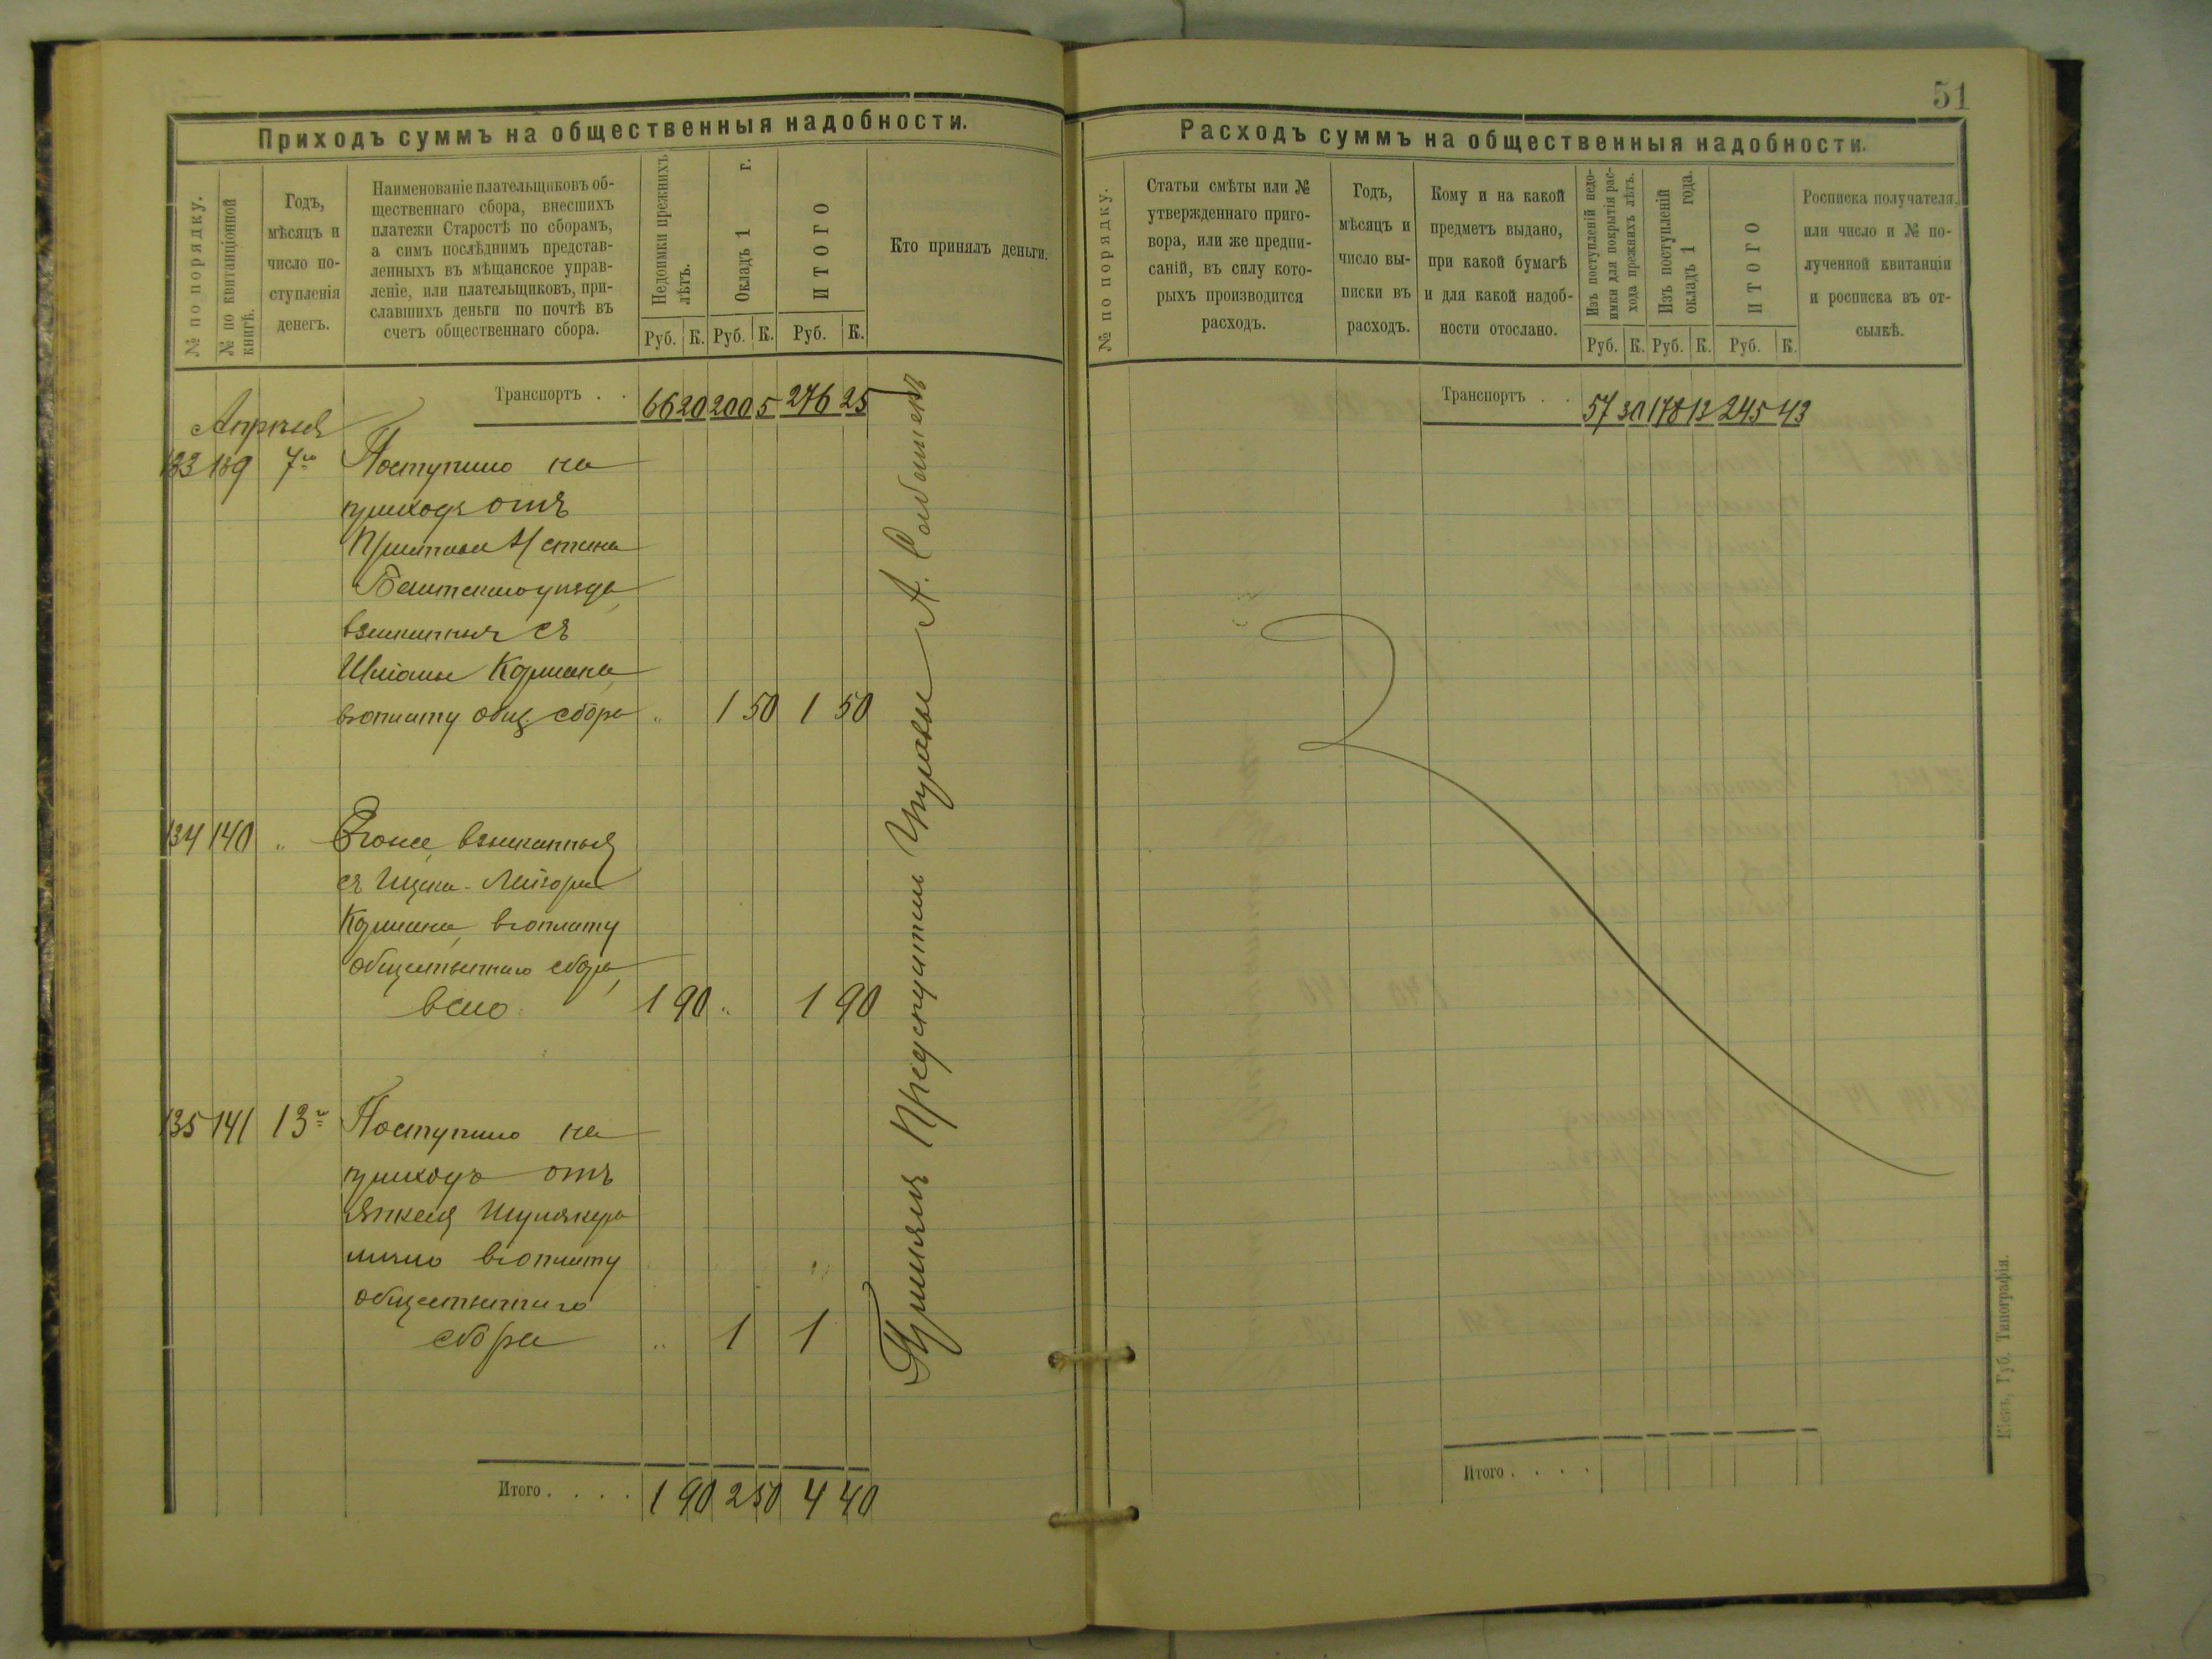 51
Приходъ суммъ на общественныя надобности.
№ по порядку.
№ по квитанціонной
книгѣ.
Годъ,
мѣсяцъ и
число по-
ступленія
денегъ.
Наименованіе плательщиковъ об-
щественнаго сбора, внесшихъ
платежи Старостѣ по сборамъ,
а симъ послѣднимъ представ-
ленныхъ въ мѣщанское управ-
леніе, или плательщиковъ, при-
славшихъ деньги по почтѣ въ
счетъ общественнаго сбора.
Недоимки прежнихъ
лѣтъ.
Окладъ 1 г.
ИТОГО
Руб. К. Руб. К. Руб. К.
Кто принялъ деньги.
Транспортъ . . 66 20 200 5 276 25
Апрѣля
133 139 7го Поступило на
приходъ отъ
Пристава 4 стана
уѣзда
взысканныя съ
Кормана
въ оплату общ. сбора " 1 50 1 50
134 140 " Его же, взысканныя
съ
Кормана, въ оплату
общественнаго сбора,
всего 1 90 " 1 90
135 141 13го Поступило на
приходъ отъ
Янкеля
лично въ оплату
общественнаго
сбора " 1 1
Итого . . . . 1 90 2 50 4 40
Принялъ Предсѣдатель Управы А.
Расходъ суммъ на общественныя надобности.
№ по порядку.
Статьи смѣты или №
утвержденнаго приго-
вора, или же предпи-
саній, въ силу кото-
рыхъ производится
расходъ.
Годъ,
мѣсяцъ и
число вы-
писки въ
расходъ.
Кому и на какой
предметъ выдано,
при какой бумагѣ
и для какой надоб-
ности отослано.
Изъ поступленій недо-
имки для покрытія рас-
хода прежнихъ лѣтъ.
Изъ поступленій
окладъ 1 года.
ИТОГО
Руб. К. Руб. К. Руб. К.
Росписка получателя,
или число и № по-
лученной квитанціи
и росписка въ от-
сылкѣ.
Транспортъ . . 57 30 178 13 245 43
Итого . . . .
Кіевъ, Губ. Типографія.